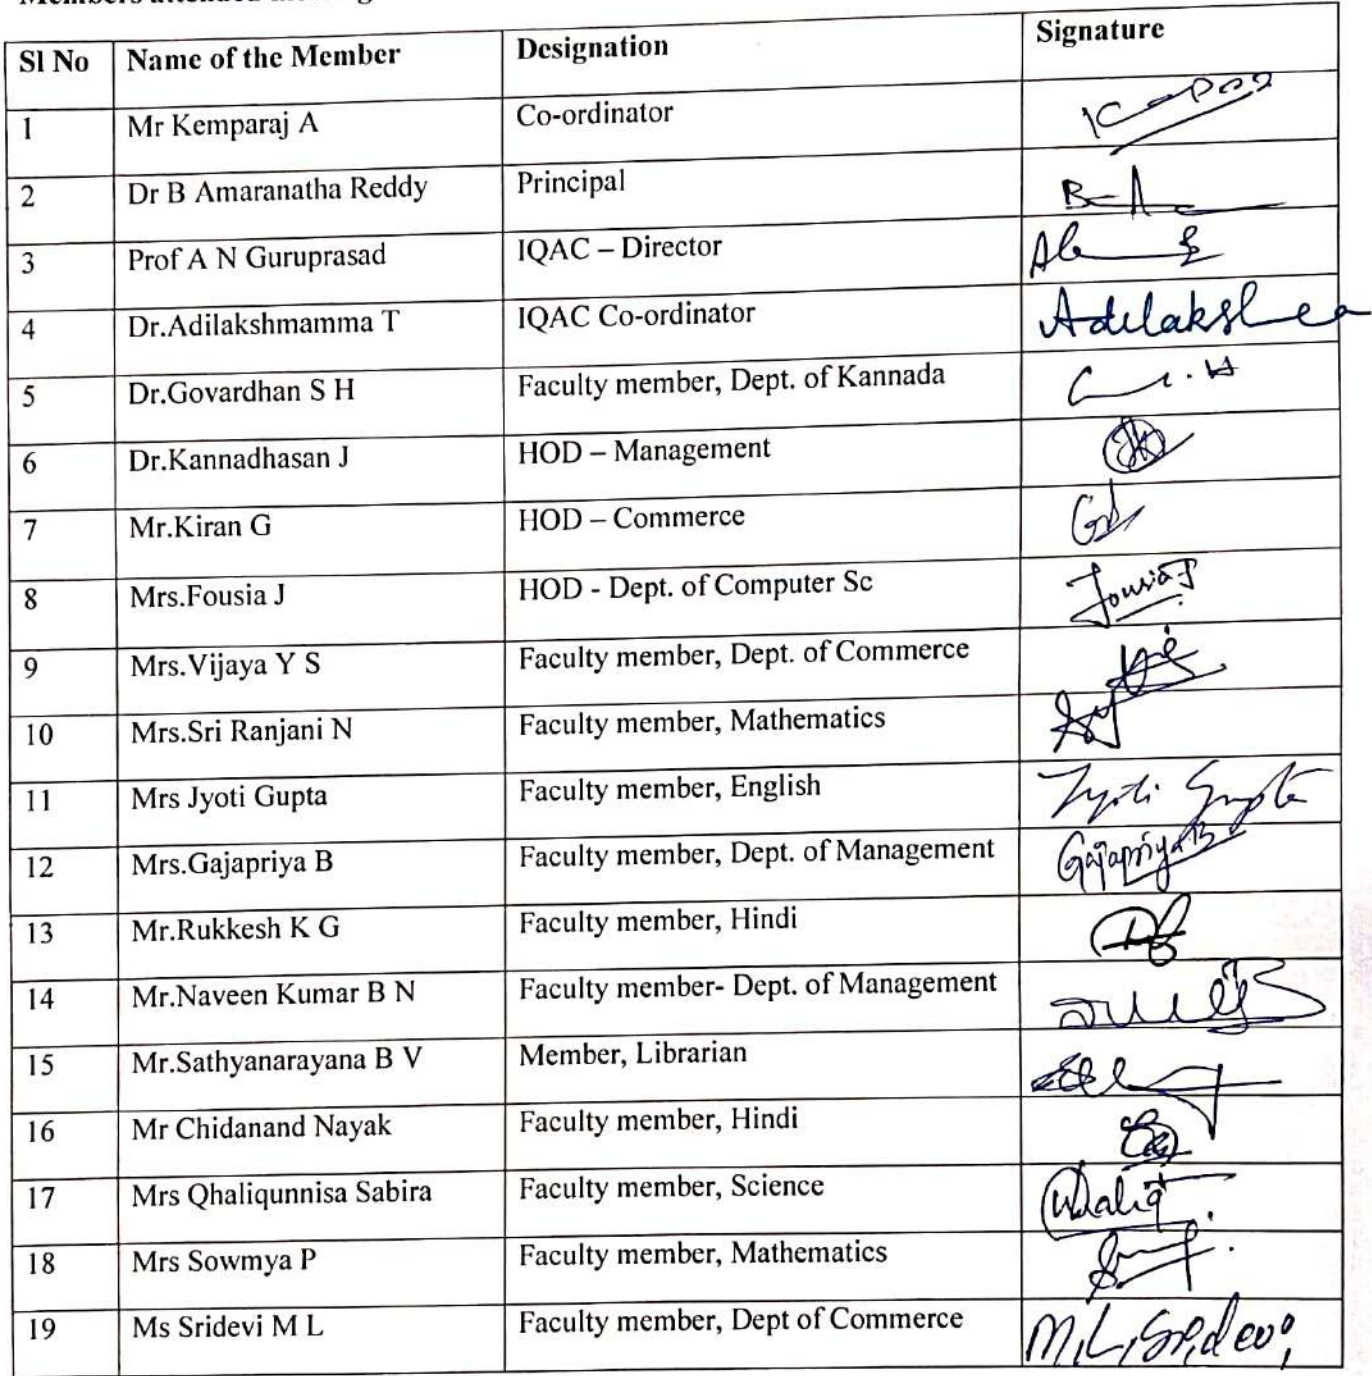 Members attended
Sl No Name of the Member Designation Signature
1 Mr Kemparaj A Co-ordinator
2 Dr B Amaranatha Reddy Principal
3 Prof A N Guruprasad IQAC – Director
4 Dr.Adilakshmamma T IQAC Co-ordinator
5 Dr.Govardhan S H Faculty member, Dept. of Kannada
6 Dr.Kannadhasan J HOD – Management
7 Mr.Kiran G HOD – Commerce
8 Mrs.Fousia J HOD - Dept. of Computer Sc Fousia J
9 Mrs.Vijaya Y S Faculty member, Dept. of Commerce
10 Mrs.Sri Ranjani N Faculty member, Mathematics
11 Mrs Jyoti Gupta Faculty member, English Jyoti Gupta
12 Mrs.Gajapriya B Faculty member, Dept. of Management Gajapriya B
13 Mr.Rukkesh K G Faculty member, Hindi
14 Mr.Naveen Kumar B N Faculty member- Dept. of Management
15 Mr.Sathyanarayana B V Member, Librarian
16 Mr Chidanand Nayak Faculty member, Hindi
17 Mrs Qhaliqunnisa Sabira Faculty member, Science
18 Mrs Sowmya P Faculty member, Mathematics
19 Ms Sridevi M L Faculty member, Dept of Commerce M.L. Sridevi